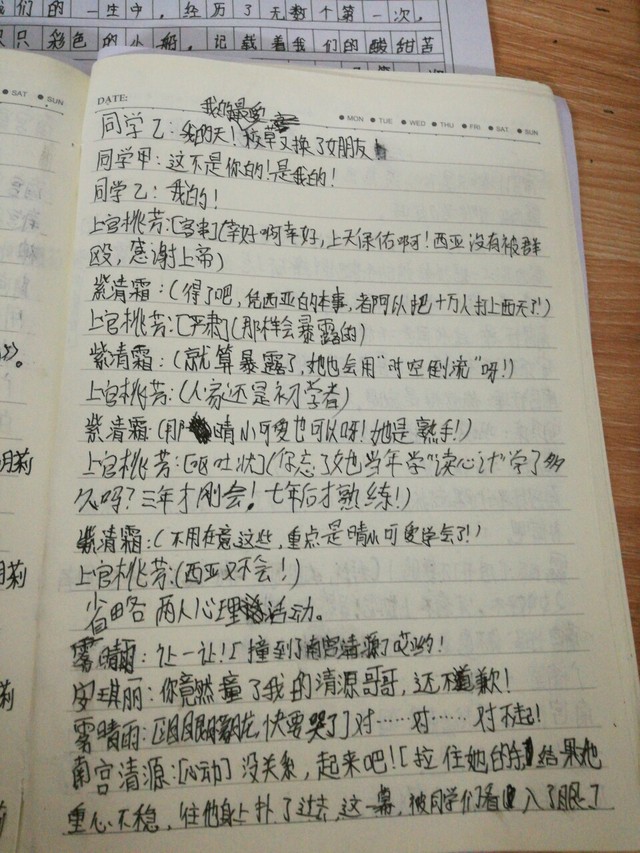 们的一生中，经历了无数个第一次，
只只彩色的小船，记载着我们的酸甜苦
SAT SUN
DATE:
MON TUE WED THU FRI SAT SUN
我的最爱
同学乙：我的天！校草又换了女朋友！
同学甲：这不是你的！是我的！
同学乙：我的！
上官桃芳：[宫串](幸好啊幸好，上天保佑啊！西亚没有被群
殴，感谢上帝)
紫清霜：(得了吧，凭西亚的本事，都可以把十万人打上西天了！)
上官桃芳：[严肃](那样会暴露的)
紫清霜：(就算暴露了，她也会用“时空倒流”呀！)
上官桃芳：(人家还是初学者)
紫清霜：(用 晴小可爱也可以呀！她是熟手！)
上官桃芳：[呕吐状](你忘了她当年学“读心术”学了多
久吗？三年才刚会！七年后才熟练！)
紫清霜：(不用在意这些，重点是晴小可爱学会了！)
上官桃芳：(西亚又不会！)
省略两人心理活动。
雾晴雨：让一让！[撞到了南宫清源了 哎哟！
安琪丽：你竟然撞了我的清源哥哥，还不道歉！
雾晴雨：[泪眼朦胧，快要哭了]对……对……对不起！
南宫清源：[心动]没关系，起来吧！[拉住她的 结果她
重心不稳，往他身上扑了过去，这一幕，被同学们看 入了眼了
月莉
莉
莉